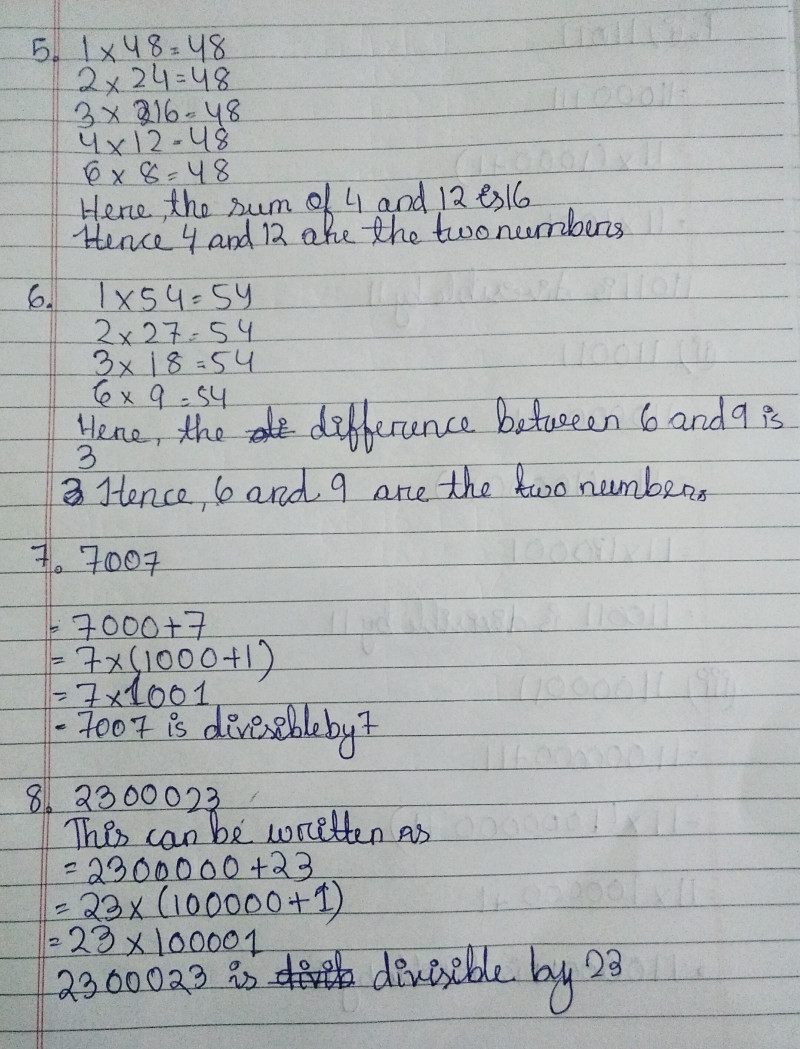 5. 1 × 48 = 48
2 × 24 = 48
3 × 16 = 48
4 × 12 = 48
6 × 8 = 48
Here, the sum of 4 and 12 is 16
Hence 4 and 12 are the two numbers
6. 1 × 54 = 54
2 × 27 = 54
3 × 18 = 54
6 × 9 = 54
Here, the difference between 6 and 9 is
3
Hence, 6 and 9 are the two numbers
7. 7007
= 7000 + 7
= 7 × (1000 + 1)
= 7 × 1001
- 7007 is divisible by 7
8. 2300023
This can be written as
= 2300000 + 23
= 23 × (100000 + 1)
= 23 × 100001
2300023 is divisible by 23